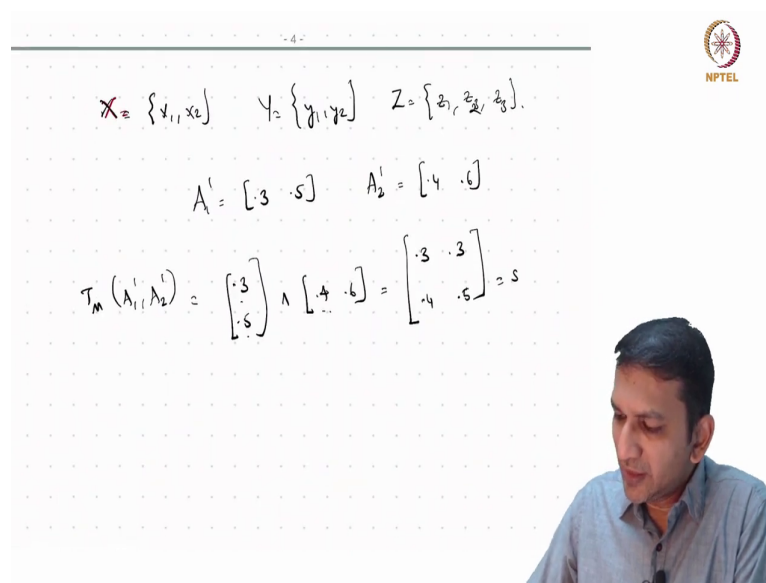 - 4 -
NPTEL
X = {x₁, x₂} Y = {y₁, y₂} Z = {z₁, z₂, z₃}.
A₁' = [.3 .5] A₂' = [.4 .6]
T_M (A₁', A₂') = [.3 .5] ∧ [.4 .6] = [.3 .3 .4 .5] = S